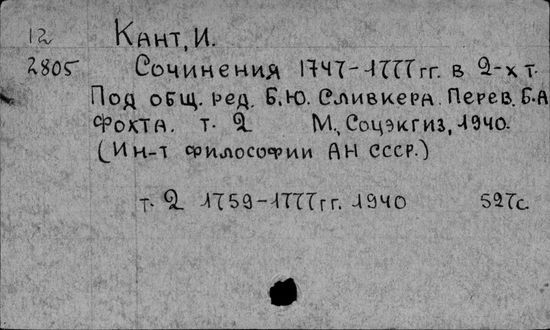 12 Кант, И.
2805 Сочинения 1747-1777 гг. в 2-х т.
Под общ. ред. Б.Ю. Сливкера. Перев. Б.А
Фохта. т. 2 М., Соцэкгиз, 1940.
(Ин-т философии АН СССР.)
т. 2 1759-1777 гг. 1940 527с.